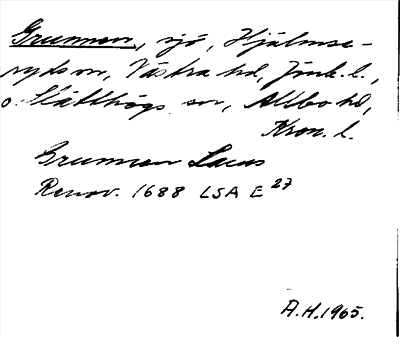 Grunnen, sjö, Hjälmse-
ryds sn, Västra hd, Jönk. l.,
o. Slätthögs sn, Allbo hd,
Kron. l.
Grunnen Lacus
Renov. 1688 LSA E 27
A.H. 1965.